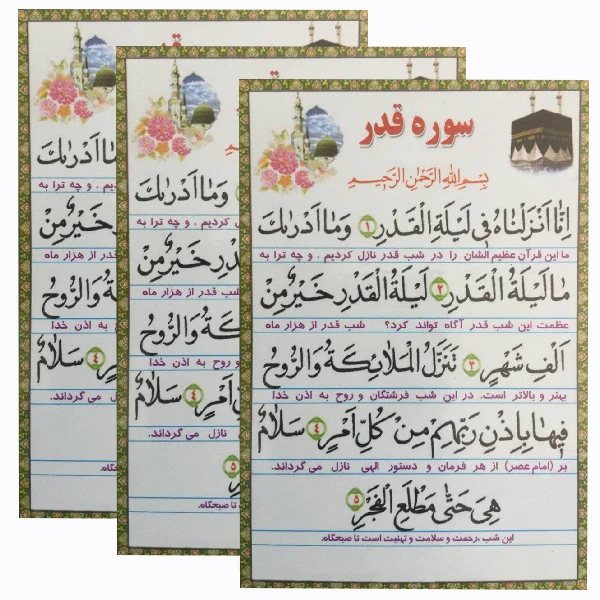 سوره قدر
بِسْمِ اللهِ الرَّحْمٰنِ الرَّحِيمِ
اِنّٰا اَنْزَلْنٰاهُ فِي لَيْلَةِ الْقَدْرِ ۱ وَمٰا اَدْرٰيكَ
ما این قرآن عظیم الشان را در شب قدر نازل کردیم . و چه ترا به
مٰا لَيْلَةُ الْقَدْرِ ۲ لَيْلَةُ الْقَدْرِ خَيْرٌ مِنْ
عظمت این شب قدر آگاه تواند کرد؟ شب قدر از هزار ماه
اَلْفِ شَهْرٍ ۳ تَنَزَّلُ الْمَلٰائِكَةُ وَالرُّوحُ
بهتر و بالاتر است. در این شب فرشتگان و روح به اذن خدا
فِيهٰا بِاِذْنِ رَبِّهِمْ مِنْ كُلِّ اَمْرٍ ۴ سَلٰامٌ
بر (امام عصر) از هر فرمان و دستور الهی نازل می گرداند.
هِيَ حَتّٰى مَطْلَعِ الْفَجْرِ ۵
این شب ،رحمت و سلامت و تهنیت است تا صبحگاه.